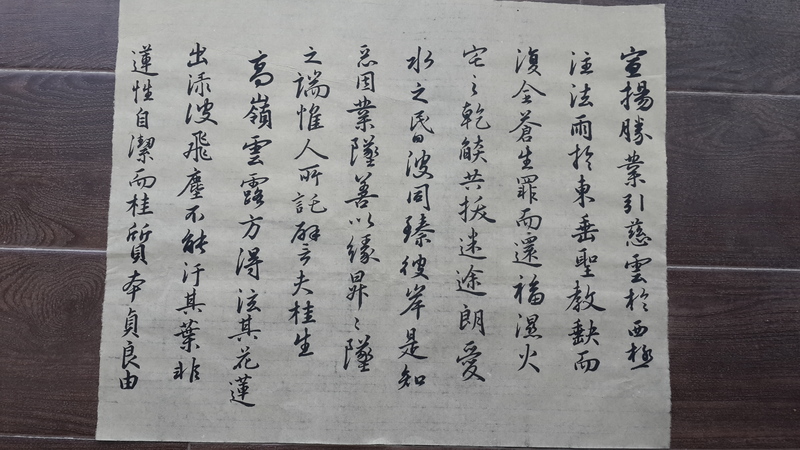 宣揚勝業引慈雲於西極
注法雨於東垂聖教缺而
復全蒼生罪而還福濕火
宅之乾燄共拔迷途朗愛
水之昏波同臻彼岸是知
惡因業墜善以緣昇昇墜
之端惟人所託譬夫桂生
高嶺雲露方得泫其花蓮
出淥波飛塵不能汙其葉非
蓮性自潔而桂質本貞良由